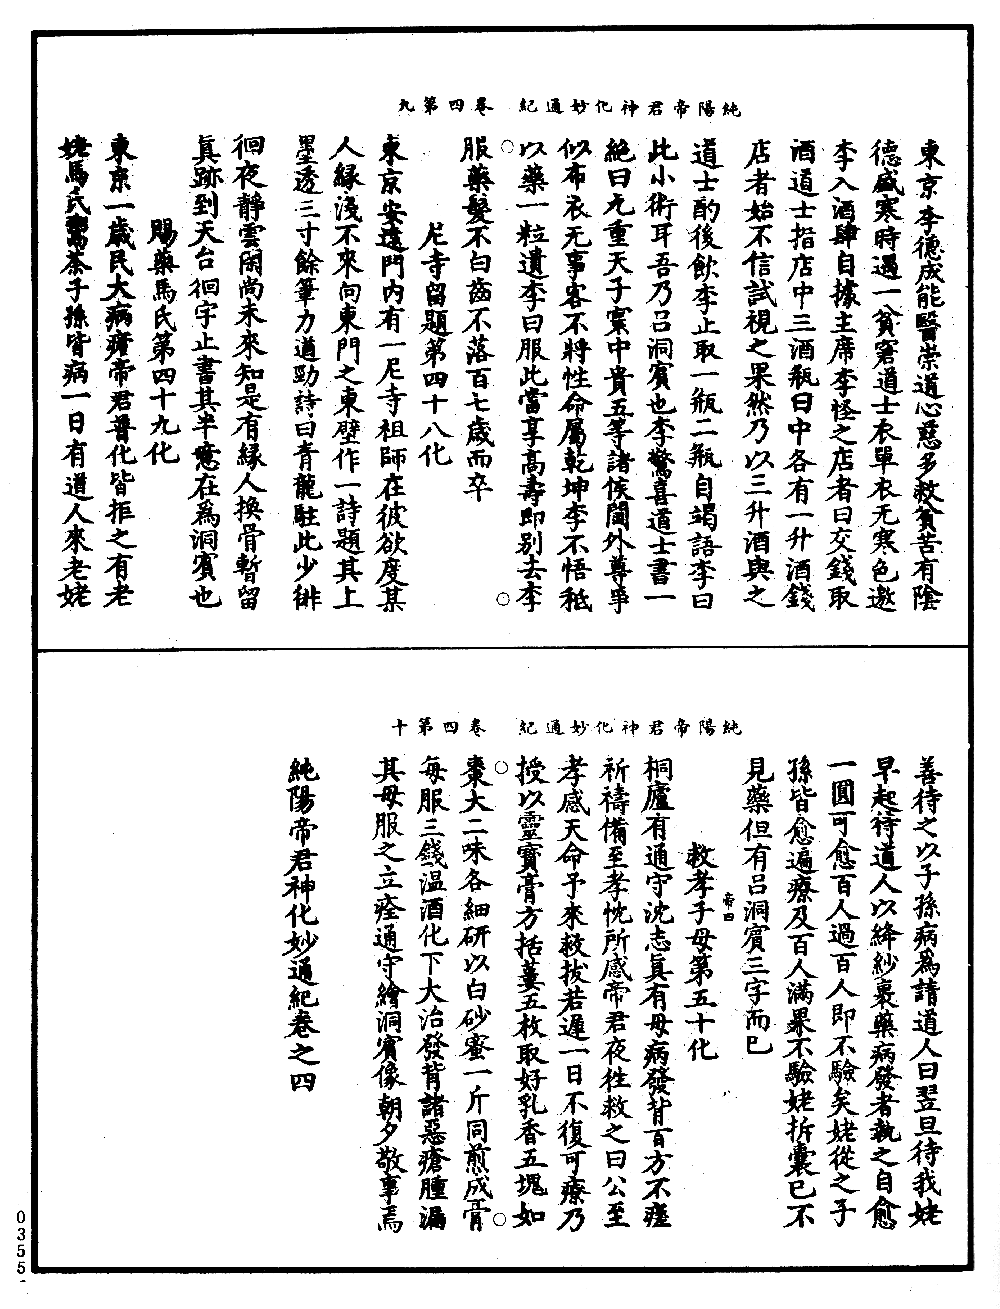 純陽帝君神化妙通紀　卷四第九
東京李德成能醫崇道心慈多救貧苦有陰
德盛寒時遇一貧窘道士衣單衣无寒色邀
李入酒肆自據主席李怪之店者曰交錢取
酒道士指店中三酒瓶曰中各有一升酒錢
店者始不信試視之果然乃以三升酒與之
道士酌後飲李止取一瓶二瓶自竭語李曰
此小術耳吾乃呂洞賓也李驚喜道士書一
絕曰九重天子寰中貴五等諸侯閫外尊爭
似布衣无事客不將性命屬乾坤李不悟秪
以藥一粒遺李曰服此當享高壽即別去李
服藥髮不白齒不落百七歲而卒
尼寺留題第四十八化
東京安遠門內有一尼寺祖師在彼欲度某
人緣淺不來向東門之東壁作一詩題其上
墨透三寸餘筆力遒勁詩曰青龍駐此少徘
徊夜靜雲閑尚未來知是有緣人換骨暫留
真跡到天台徊字止書其半意在為洞賓也
賜藥馬氏第四十九化
東京一歲民大病瘧帝君普化皆拒之有老
姥馬氏鬻茶子孫皆病一日有道人來老姥
純陽帝君神化妙通紀　卷四第十
善待之以子孫病為請道人曰翌旦待我姥
早起待道人以絳紗裹藥病發者執之自愈
一圓可愈百人過百人即不驗矣姥從之子
孫皆愈遍療及百人滿果不驗姥拆囊已不
見藥但有呂洞賓三字而已
帝四
救孝子母第五十化
桐廬有通守沈志真有母病發背百方不瘥
祈禱備至孝忱所感帝君夜徃救之曰公至
孝感天命予來救拔若遲一日不復可療乃
授以靈寶膏方括蔞五枚取好乳香五塊如
棗大二味各細研以白砂蜜一斤同煎成膏
每服三錢温酒化下大治發背諸惡瘡腫漏
其母服之立痊通守繪洞賓像朝夕敬事焉
純陽帝君神化妙通紀卷之四
0355